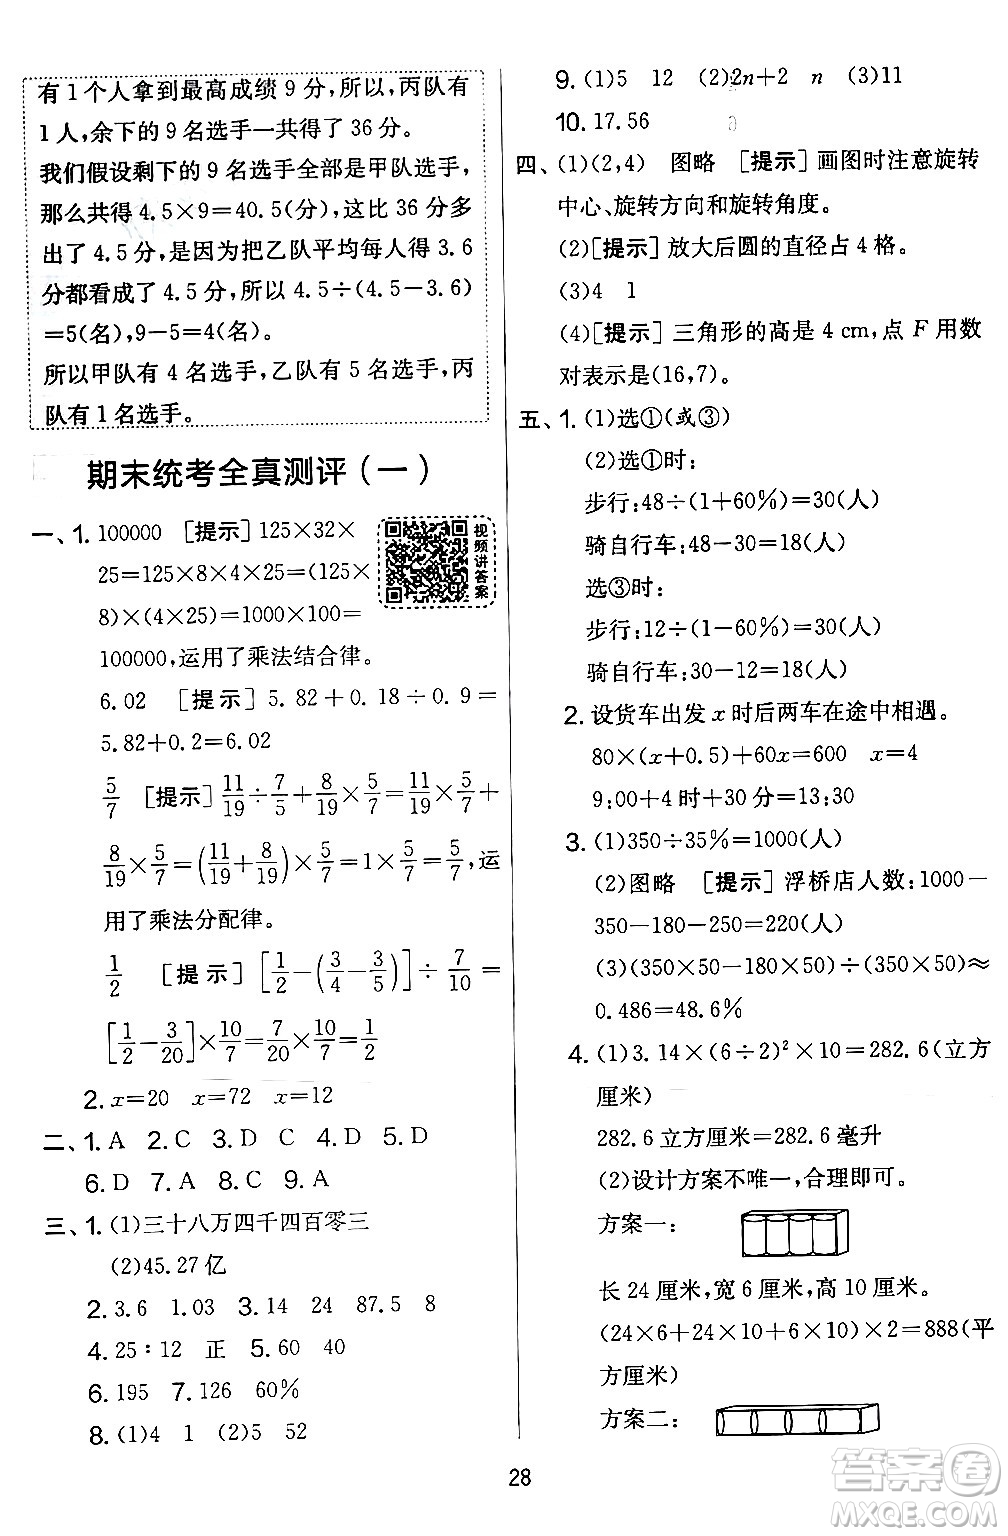 有1个人拿到最高成绩9分，所以，丙队有
1人，余下的9名选手一共得了36分。
我们假设剩下的9名选手全部是甲队选手，
那么共得4.5×9=40.5(分)，这比36分多
出了4.5分，是因为把乙队平均每人得3.6
分都看成了4.5分，4.5÷(4.5-3.6)
=5(名)，9-5=4(名)。
所以甲队有4名选手，乙队有5名选手，丙
队有1名选手。
期末统考全真测评(一)
视频讲答案
一、1. 100000 [提示]125×32×
25=125×8×4×25=(125×
8)×(4×25)=1000×100=
100000，运用了乘法结合律。
6.02 [提示]5.82+0.18÷0.9=
5.82+0.2=6.02
5/7 [提示]11/19÷7/5+8/19×5/7=11/19×5/7+
8/19×5/7=(11/19+8/19)×5/7=1×5/7=5/7，运
用了乘法分配律。
1/2 [提示][1/2-(3/4-3/5)]÷7/10=
[1/2-3/20]×10/7=7/20×10/7=1/2
2. x=20 x=72 x=12
二、1. A 2. C 3. D C 4. D 5. D
6. D 7. A 8. C 9. A
三、1. (1)三十八万四千四百零三
(2)45.27亿
2. 3.6 1.03 3. 14 24 87.5 8
4. 25∶12 正 5. 60 40
6. 195 7. 126 60%
8. (1)4 1 (2)5 52
9. (1)5 12 (2)2n+2 n (3)11
10. 17.56
四、(1)(2,4) 图略 [提示]画图时注意旋转
中心、旋转方向和旋转角度。
(2)[提示]放大后圆的直径占4格。
(3)4 1
(4)[提示]三角形的高是4 cm，点F用数
对表示是(16,7)。
五、1. (1)选①(或③)
(2)选①时：
步行：48÷(1+60%)=30(人)
骑自行车：48-30=18(人)
选③时：
步行：12÷(1-60%)=30(人)
骑自行车：30-12=18(人)
2. 设货车出发x时后两车在途中相遇。
80×(x+0.5)+60x=600 x=4
9:00+4时+30分=13:30
3. (1)350÷35%=1000(人)
(2)图略 [提示]浮桥店人数：1000-
350-180-250=220(人)
(3)(350×50-180×50)÷(350×50)≈
0.486=48.6%
4. (1)3.14×(6÷2)²×10=282.6(立方
厘米)
282.6立方厘米=282.6毫升
(2)设计方案不唯一，合理即可。
方案一：
长24厘米，宽6厘米，高10厘米。
(24×6+24×10+6×10)×2=888(平
方厘米)
方案二：
28
答案圈
MXQE.COM